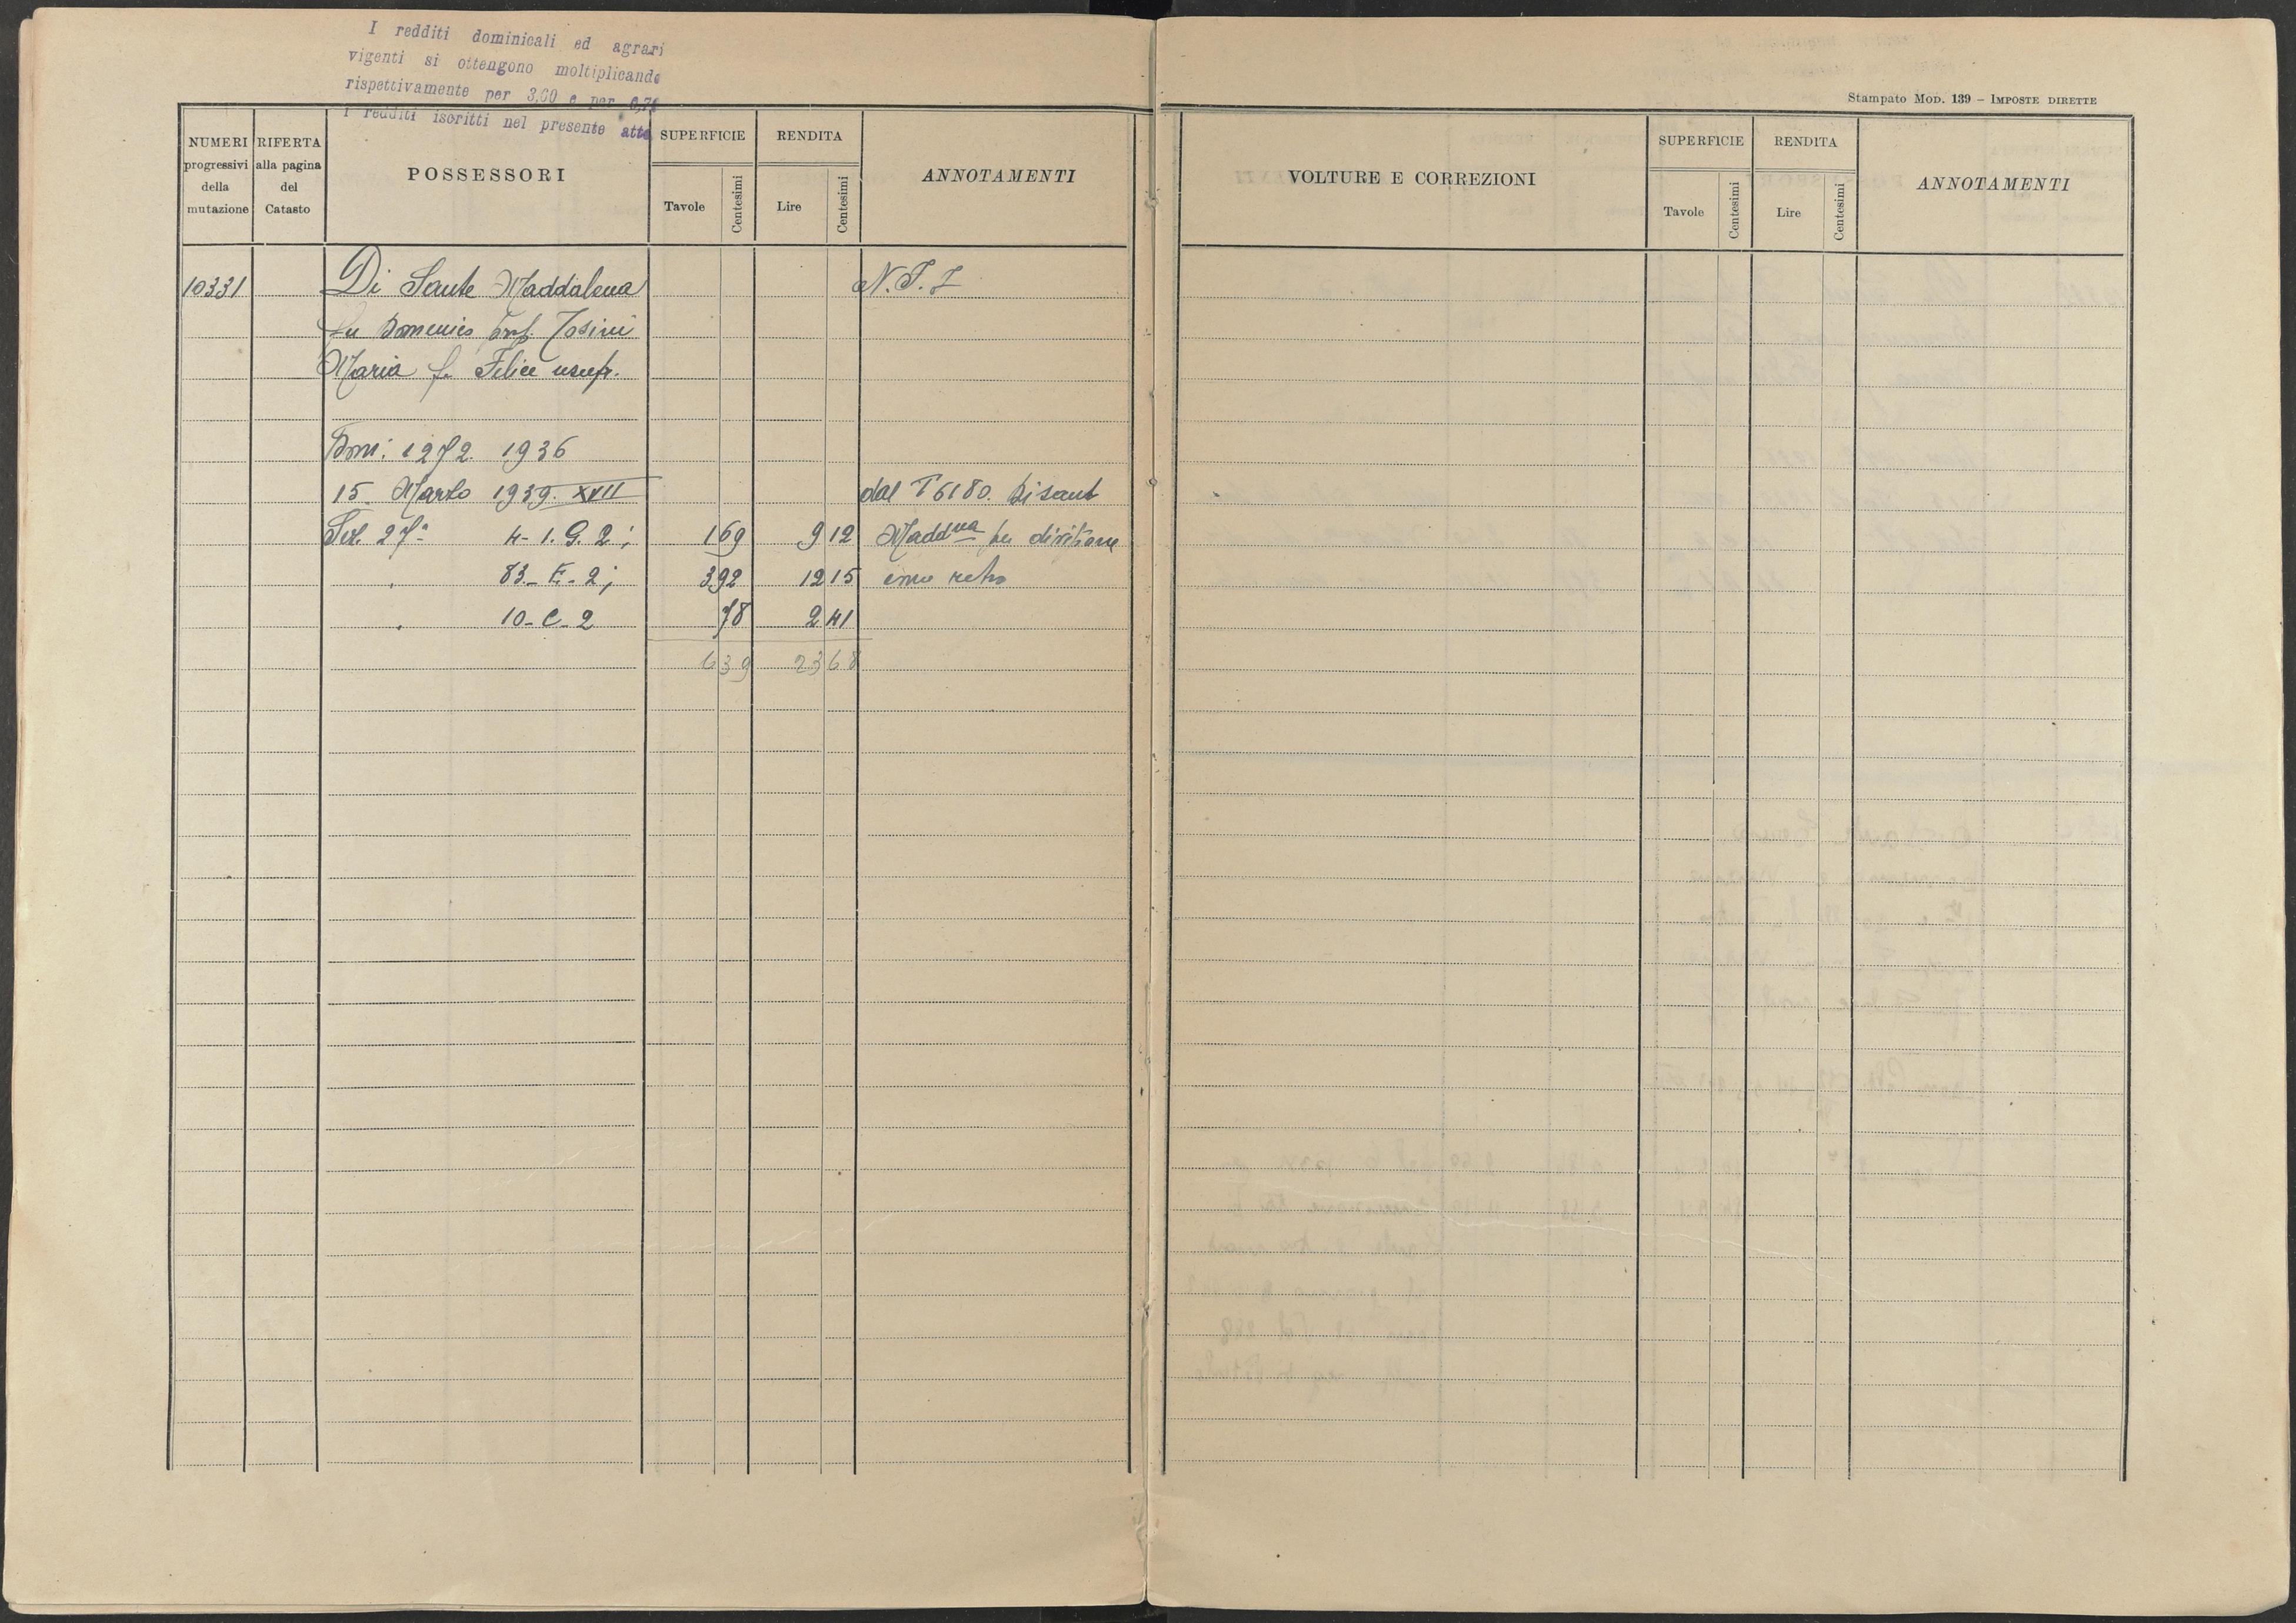 I redditi dominicali ed agrari
vigenti si ottengono moltiplicando
rispettivamente per 3,60 e per 0,74
i redditi iscritti nel presente atto
Stampato Mod. 139 – Imposte dirette
NUMERI progressivi della mutazione
RIFERTA alla pagina del Catasto
POSSESSORI
SUPERFICIE
Tavole
Centesimi
RENDITA
Lire
Centesimi
ANNOTAMENTI
VOLTURE E CORREZIONI
SUPERFICIE
Tavole
Centesimi
RENDITA
Lire
Centesimi
ANNOTAMENTI
10331 Di Sante Maddalena N.T.I
fu Domenico Tosini
Maria fu Felice usufr.
1272 1936
15 Marzo 1939. XVII dal T 6180. Di Sant
27a 4-1.G.2; 1 69 9 12 Maddna per divisione
83-E-2; 3 92 12 15 retro
10-C-2 78 2 41
6 39 23 68